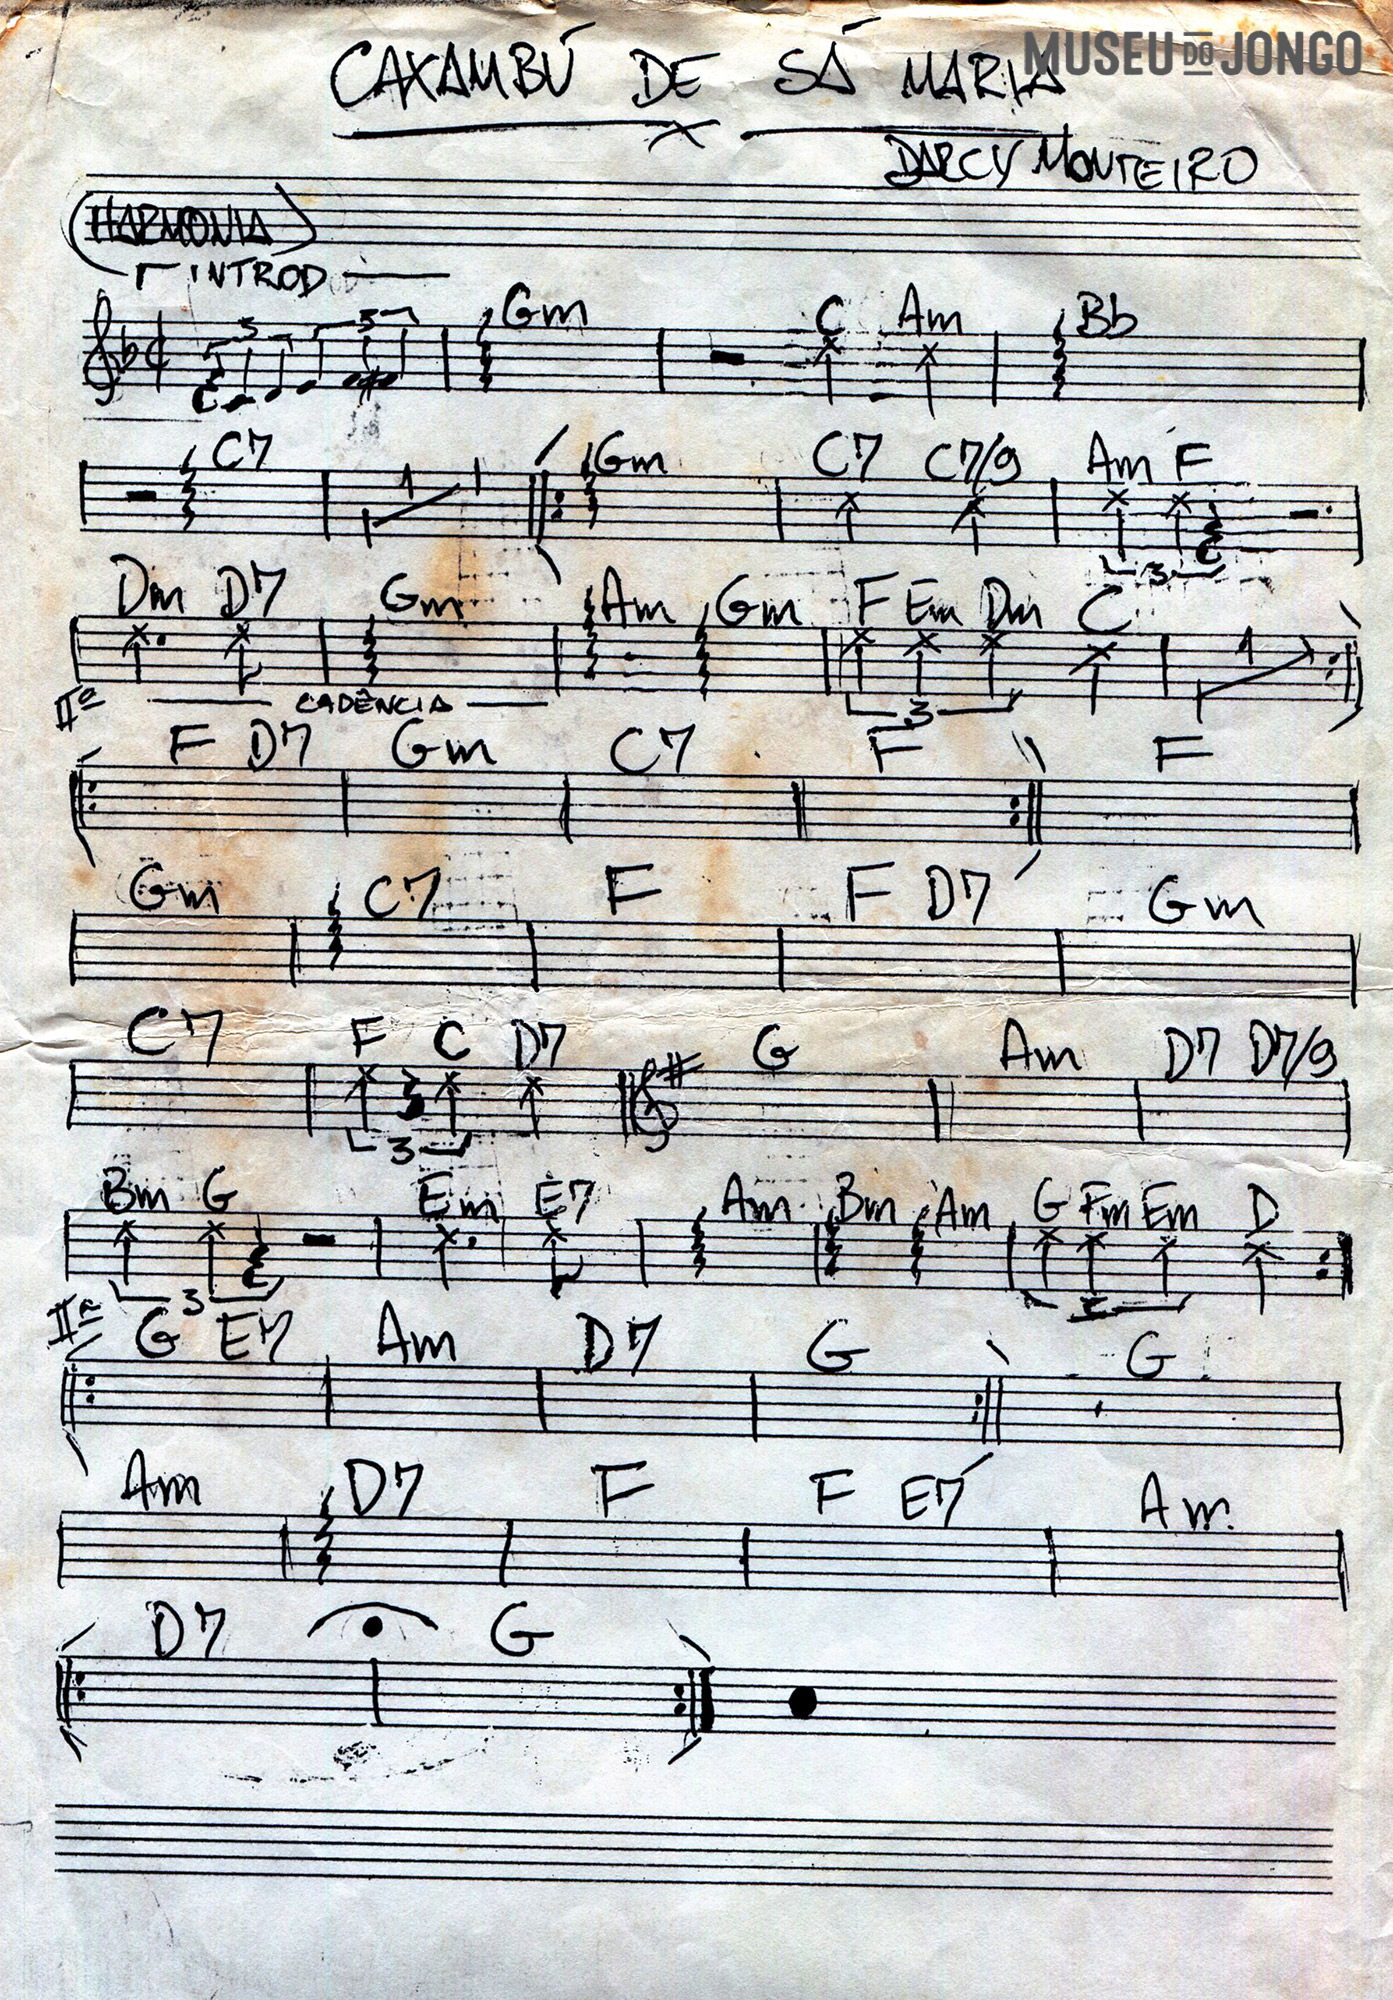 CAXAMBÚ DE SÁ MARIA
MUSEU DO JONGO
DARCY MONTEIRO
HARMONIA
INTROD
3 3 Gm C Am Bb
C7 1 Gm C7 C7/9 Am F
3
Dm D7 Gm Am Gm F Em Dm C 1
IIª CADÊNCIA 3
F D7 Gm C7 F F
Gm C7 F F D7 Gm
C7 F C D7 G Am D7 D7/9
3
Bm G Em E7 Am Bm Am G Fm Em D
3
IIª
G E7 Am D7 G G
Am D7 F F E7 Am
D7 G